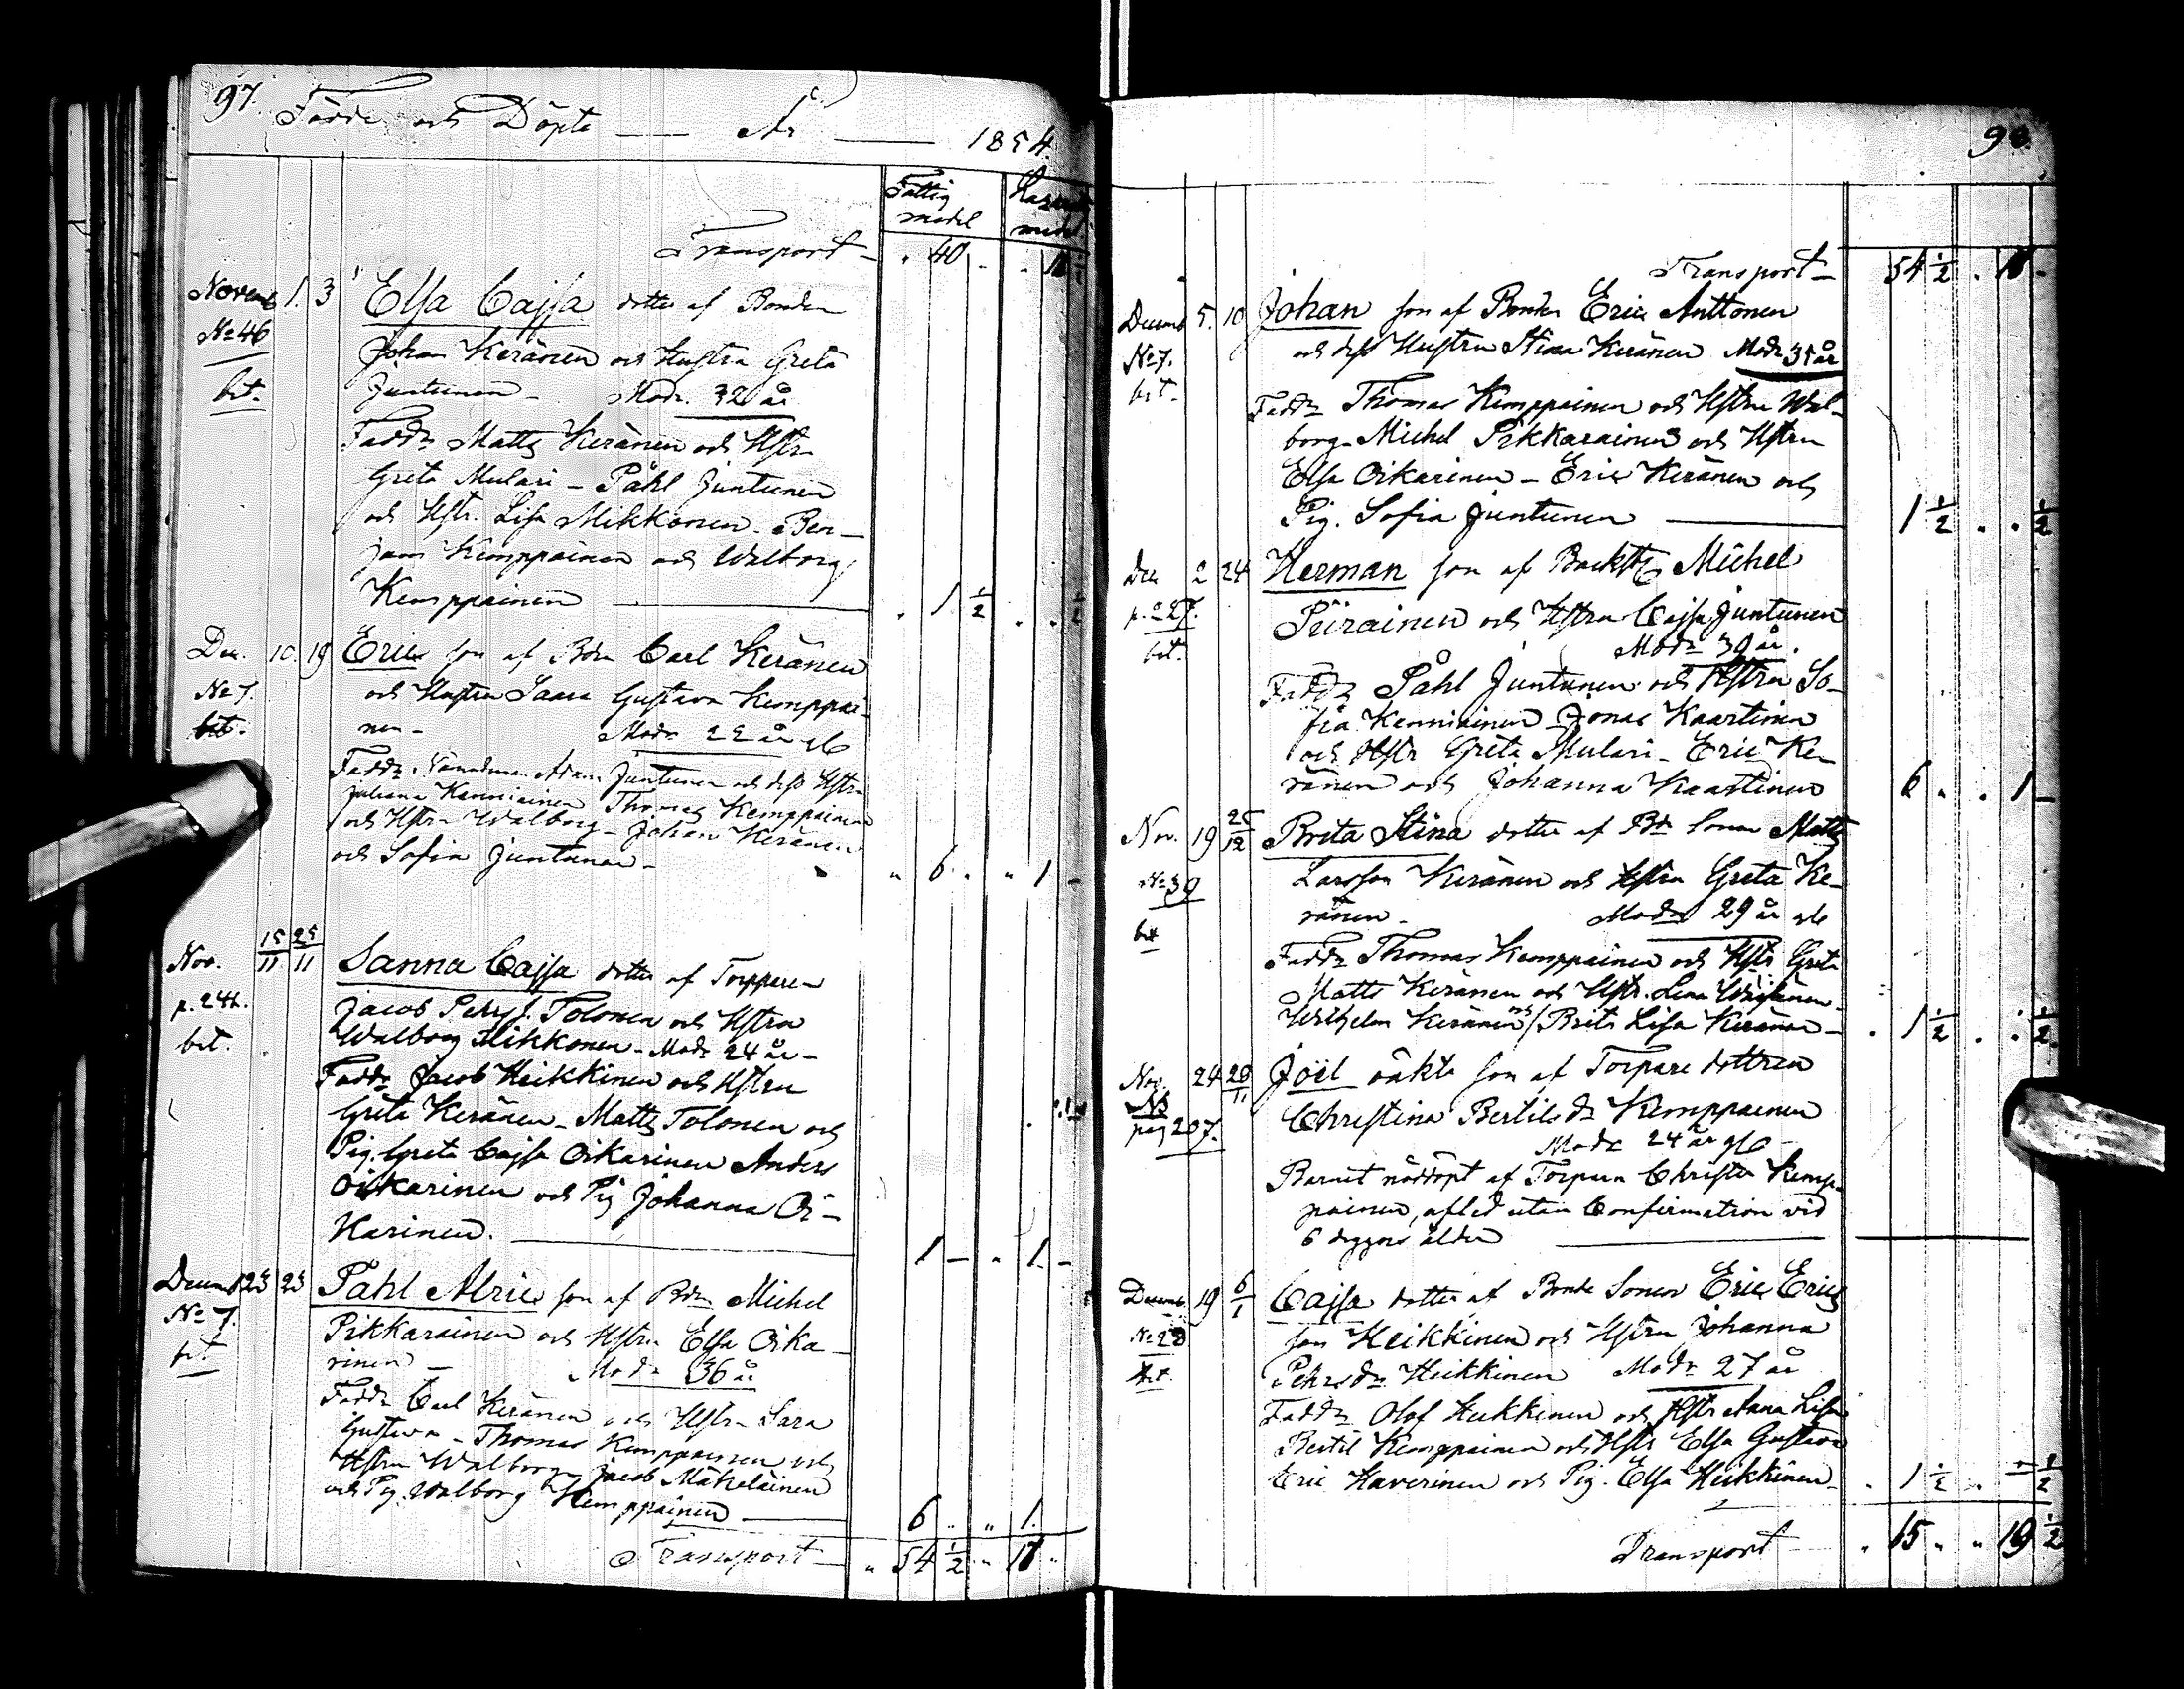 97.
Födde och Döpte — År — 1854.
Fattig medel
Transport — 40 -
Novemb 1. 3 Elsa Cajsa dotter af Bonden
No 46 Johan Keränen och Hustru Greta
bet. Juntunen - Modr. 32 år
Faddr Matts Keränen och Hstr
Greta Mulari - Påhl Juntunen
och Hstr. Lisa Mikkonen - Ben-
jam Kemppainen och Walborg
Kemppainen — 1 1/2 1/2
Dec. 10. 19 Eric son af Bdn Carl Keränen
No 7. och Hustru Saara Gustava Kemppai-
bet. nen - Modr 22 år
Faddr. Nämdeman Adam Juntunen och dess Hstru
Juliana Kanniainen Thomas Kemppainen
och Hstru Walborg - Johan Keränen
och Sofia Juntunen - 6 1
Nov. 15/11 25/11 Sanna Cajsa dotter af Torpparen
p. 242. Jacob Pehrs. Tolonen och Hstru
bet. Walborg Mikkonen - Modr 24 år -
Faddr Jacob Heikkinen och Hstru
Greta Keränen - Matts Tolonen och
Pig. Greta Cajsa Oikarinen Anders
Oikarinen och Pig Johanna Oi-
karinen. — 1 - 1 -
Decemb 23 23 Påhl Alric son af Bdn Michel
No 7. Pikkarainen och Hstru Elsa Oika-
bet rinen - Modr 36 år
Faddr Carl Keränen och Hstru Sara
Gustava - Thomas Kemppainen och
Hstru Walborg Jacob Mäkeläinen
och Pig. Walborg Kemppainen — 6 1.
Transport — 54 1/2 18
98.
Transport — 54 1/2 18 -
Decemb 5. 10 Johan son af Bonden Eric Anttonen
No 7. och dess Hustru Stina Keränen Modr 35 år
bet. Faddr Thomas Kemppainen och Hstru Wal-
borg - Michel Pikkarainen och Hstru
Elsa Oikarinen - Eric Keränen och
Pig. Sofia Juntunen — 1 1/2 1/2
Dec 2 24 Herman son af Backstg Michel
p. 27. Piirainen och Hstru Cajsa Juntunen
bet. Modr 39 år.
Faddr Påhl Juntunen och Hstru So-
fia Kenniainen Jonas Kaartinen
och Hstr Greta Mulari - Eric Ke-
ränen och Johanna Kaartinen 6 1 -
Nov. 19 26/12 Brita Stina dotter af Bd sonen Matts
No 39 Larsson Keränen och Hstru Greta Ke-
bet ränen - Modr 29 år
Faddr Thomas Kemppainen och Hstr Greta
Matts Keränen och Hstr. Lena Wäisänen
Wilhelm Keränen och Brita Lisa Keränen - 1 1/2 1/2
Nov. 24 28/11 Joël oäkta son af Torpare dottren
pag 207. Christina Bertilsdr Kemppainen
Modr 24 år
Barnet nöddöpt af Torparn Christer Kemp-
painen, afled utan Confirmation vid
6 dygns ålder —
Decemb. 19 6/1 Cajsa dotter af Bonde Sonen Eric Erics
No 28 son Heikkinen och Hstru Johanna
bet. Pehrsdr Heikkinen Modr 27 år
Faddr Olof Heikkinen och Hstr Anna Lisa
Bertil Kemppainen och Hstr Elsa Gustava
Eric Haverinen och Pig. Elsa Heikkinen - 1 1/2 1/2
Transport 15 19 1/2